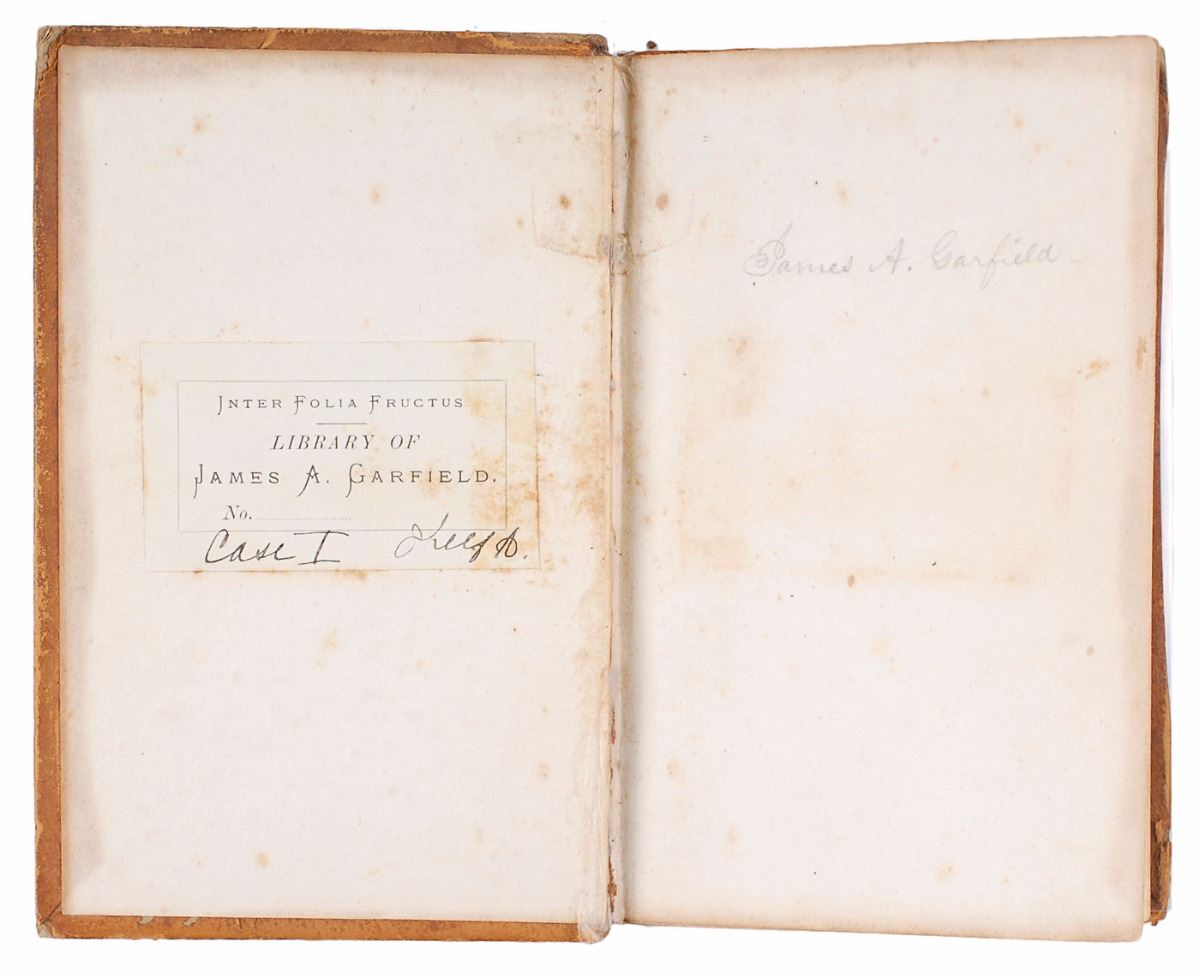 INTER FOLIA FRUCTUS
LIBRARY OF
JAMES A. GARFIELD.
No.
Case I
James A. Garfield